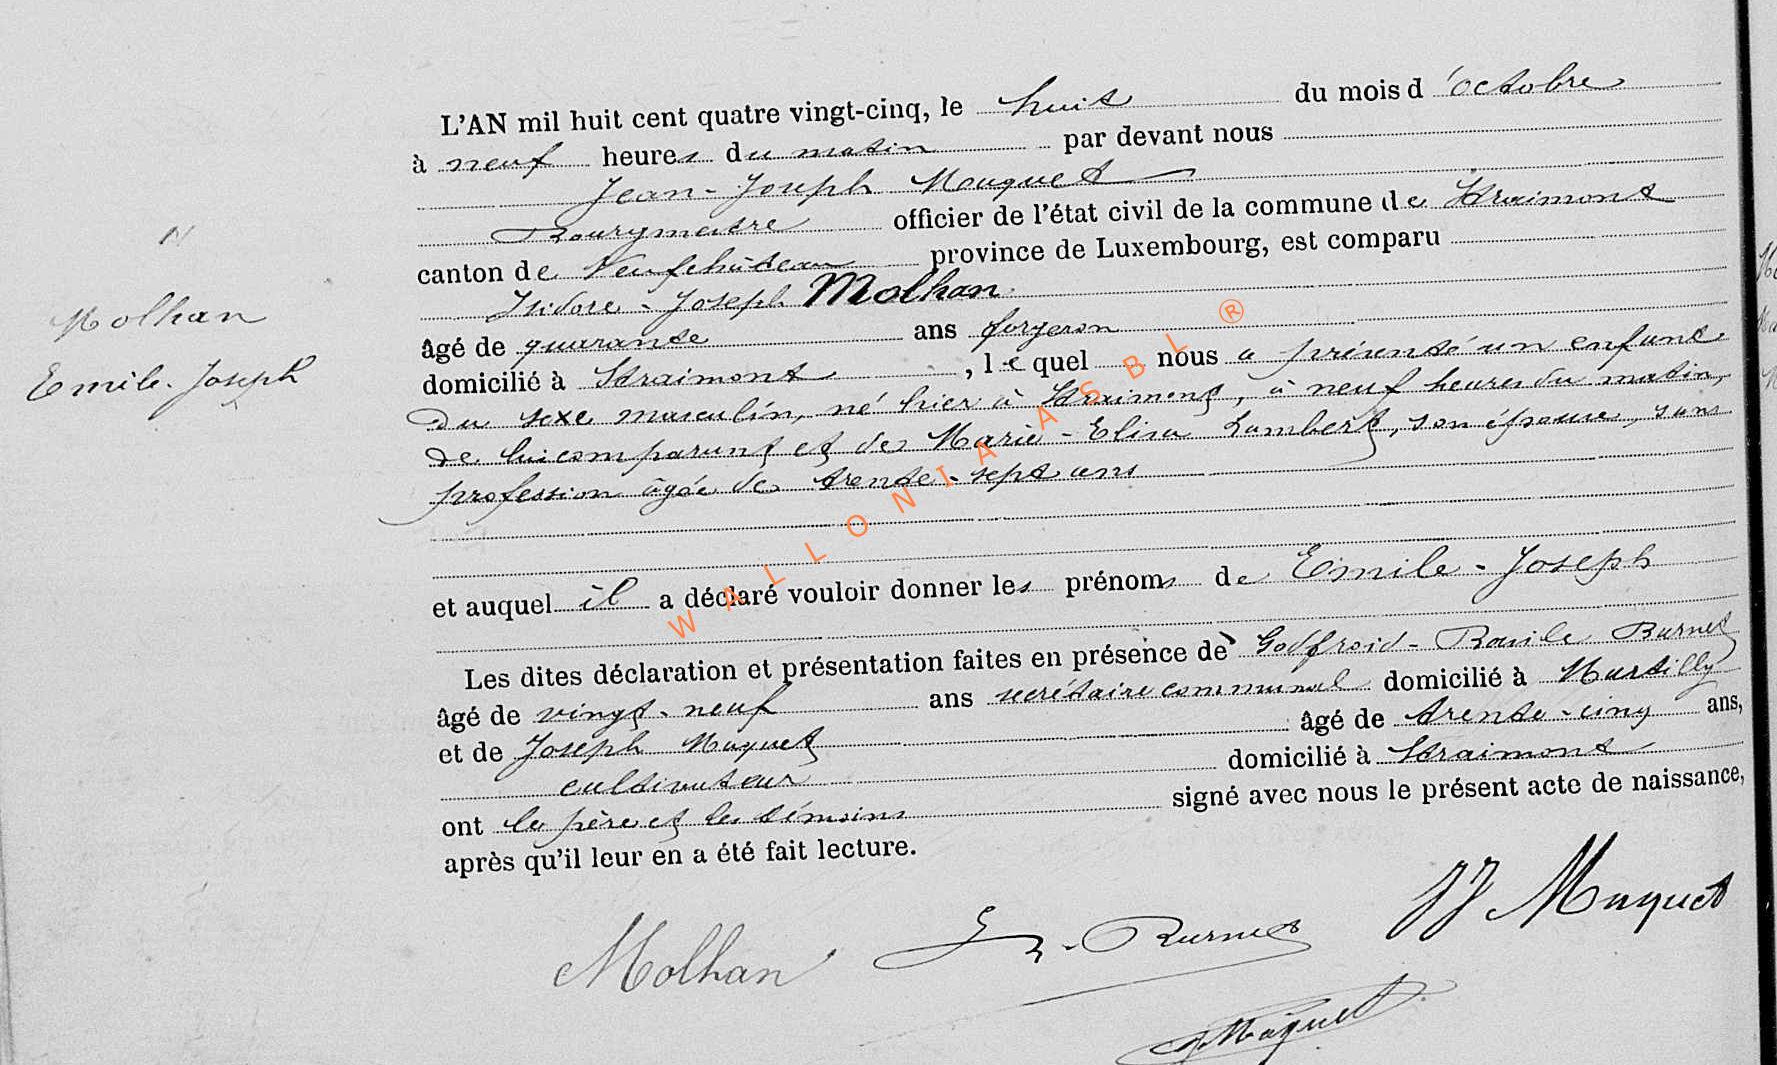 N
Molhan
Emile-Joseph
L'AN mil huit cent quatre vingt-cinq, le huit du mois d'octobre
à neuf heures du matin par devant nous
Jean-Joseph Maquet
Bourgmestre officier de l'état civil de la commune de Straimont
canton de Neufchâteau province de Luxembourg, est comparu
Isidore-Joseph Molhan
âgé de quarante ans forgeron
domicilié à Straimont, lequel nous a présenté un enfant
du sexe masculin, né hier à Straimont, à neuf heures du matin,
de lui comparant et de Marie-Elisa Lambert, son épouse, sans
profession âgée de trente-sept ans
et auquel il a déclaré vouloir donner les prénoms de Emile-Joseph
Les dites déclaration et présentation faites en présence de Godfroid-Basile Burnet
âgé de vingt-neuf ans secrétaire communal domicilié à Martilly
et de Joseph Maquet âgé de trente-cinq ans,
cultivateur domicilié à Straimont
ont le père et les témoins signé avec nous le présent acte de naissance,
après qu'il leur en a été fait lecture.
JJ Maquet
Molhan Burnet
Maquet
WALLONIA ASBL ®